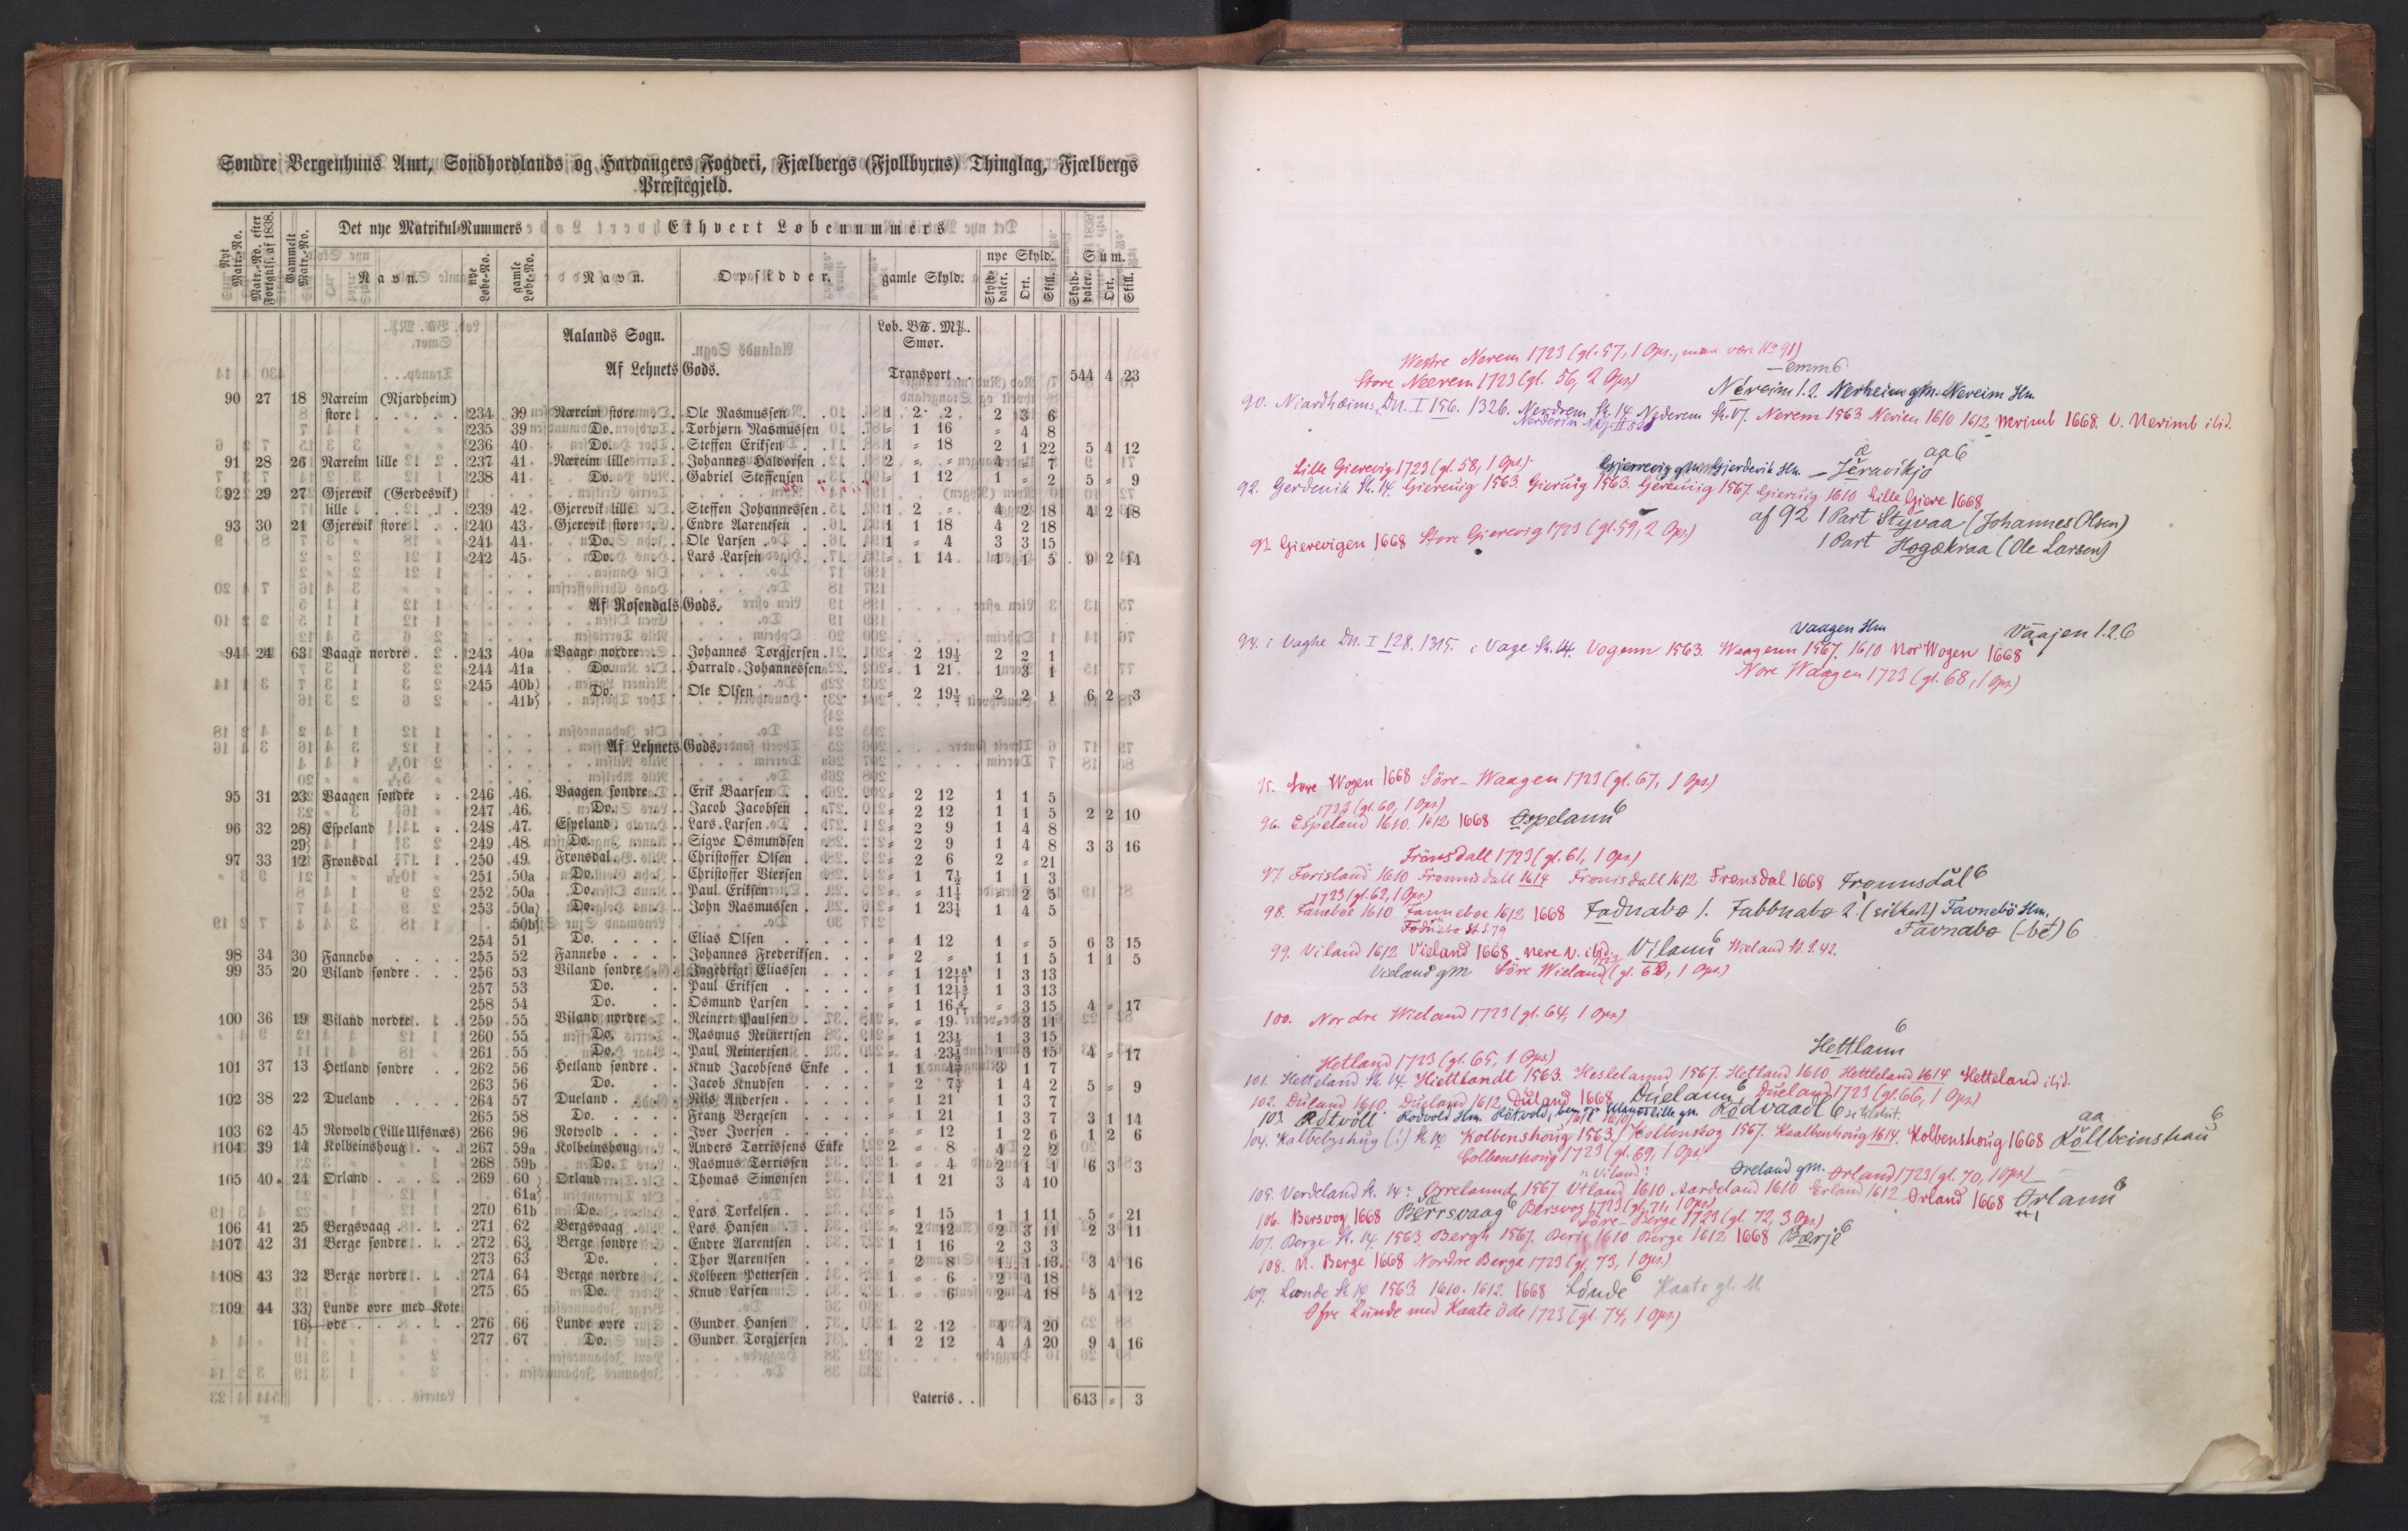 Søndre Bergenhuus Amt, Søndhordlands og Hardangers Fogderi, Fjælbergs (Fjollbyrns) Thinglag, Fjælbergs
Præstegjeld.
Nyt Matr.-No.
Matr.-No. efter Fortegnis. af 1838.
Gammelt Matr.-No.
Det nye Matrikul-Nummers
Ethvert Løbenummers
Navn.
nye Løbe-No.
gamle Løbe-No.
Navn.
Opsidder.
gamle Skyld.
nye Skyld.
Skylddaler. Ort. Skill.
Sum.
Skylddaler. Ort. Skill.
Aalands Sogn.
Løb. B℔. M℔.
Smør.
Af Lehnets Gods.
Transport . . 544 4 23
90 27 18 Næreim (Njardheim)
store . . . . . 234 39 Næreim store . . Ole Rasmussen . . . 1 2 2 2 3 6
235 39 Do. Torbjørn Rasmussen . = 1 16 = 4 8
236 40 Do. Steffen Eriksen . . . 1 = 18 2 1 22 5 4 12
91 28 26 Næreim lille . . . 237 41 Næreim lille . . Johannes Haldorsen . . 2 = = 4 1 7
238 41 Do. Gabriel Steffensen . . = 1 12 1 = 2 5 = 9
92 29 27 Gjerevik (Gerdesvik)
lille . . . . 239 42 Gjerevik lille . . Steffen Johannessen . . 1 2 = 4 2 18 4 2 18
93 30 21 Gjerevik store . . 240 43 Gjerevik store . . Endre Aarentsen . . = 1 18 4 2 18
241 44 Do. Ole Larsen . . . . 1 = 4 3 3 15
242 45 Do. Lars Larsen . . . . = 1 14 1 1 5 9 2 14
Af Rosendals Gods.
94 24 63 Vaage nordre . . 243 40a Vaage nordre . . Johannes Torgjersen . . = 2 19½ 2 2 1
244 41a Do. Harrald Johannessen . = 1 21 1 3 1
245 40b)
41b) Do. Ole Olsen . . . . = 2 19½ 2 2 1 6 2 3
Af Lehnets Gods.
95 31 23 Vaagen søndre . . 246 46 Vaagen søndre . . Erik Baarsen . . . = 2 12 1 1 5
247 46 Do. Jacob Jacobsen . . . = 2 12 1 1 5 2 2 10
96 32 28) Espeland . . . . 248 47 Espeland . . . Lars Larsen . . . . = 2 9 1 4 8
29) 249 48 Do. Sigve Osmundsen . . = 2 9 1 4 8 3 3 16
97 33 12 Frønsdal . . . . 250 49 Frønsdal . . . Christoffer Olsen . . = 2 6 2 = 21
251 50a Do. Christoffer Viersen . . = 1 7½ 1 1 3
252 50a Do. Paul Eriksen . . . = = 11¼ = 2 5
253 50a) Do. John Rasmussen . . . = 1 23¼ 1 4 5
50b)
254 51 Do. Elias Olsen . . . . = 1 12 1 = 5 6 3 15
98 34 30 Fannebø . . . . 255 52 Fannebø . . . . Johannes Frederiksen . . = 2 = 1 1 5 1 1 5
99 35 20 Viland søndre . . . 256 53 Viland søndre . . Ingebrigt Eliassen . . = 1 12 1 3 13
257 53 Do. Paul Eriksen . . . . = 1 12 1 3 13
258 54 Do. Osmund Larsen . . . = 1 16 = 3 15 4 = 17
100 36 19 Viland nordre . . . 259 55 Viland nordre . . Reinert Paulsen . . . = = 19 = 3 11
260 55 Do. Rasmus Reinertsen . . = 1 23½ 1 3 15
261 55 Do. Paul Reinertsen . . . = 1 23½ 1 3 15 4 = 17
101 37 13 Hetland søndre . . 262 56 Hetland søndre . . Knud Jacobsens Enke . . 1 1 3 1 7
263 56 Do. Jacob Knudsen . . . = 2 1 4 2 5 = 9
102 38 22 Dueland . . . . 264 57 Dueland . . . Nils Andersen . . . = 1 21 1 3 7
265 58 Do. Frantz Bergesen . . . = 1 21 1 3 7 3 1 14
103 62 45 Rotvold (Lille Ulfsnæs) 266 96 Rotvold . . . . Iver Iversen . . . . = = 12 1 2 6 1 2 6
104 39 14 Kolbeinshoug . . . 267 59a Kolbeinshoug . . Anders Tørrissens Enke . 2 = 8 4 2 2
268 59b Do. Rasmus Tørrissen . . = 1 = 4 2 1 1 6 3 3
105 40 24 Ørland . . . . . 269 60 Ørland . . . . Thomas Simonsen . . 1 1 21 3 4 10
61a)
270 61b Do. Lars Torkelsen . . . = 1 15 1 1 11 5 = 21
106 41 25 Bergsvaag . . . . 271 62 Bergsvaag . . . Lars Hansen . . . . = 2 12 2 3 11 2 3 11
107 42 31 Berge søndre . . . 272 63 Berge søndre . . Endre Aarentsen . . . 1 1 16 2 3 3
273 63 Do. Thor Aarentsen . . . = 2 8 1 1 13 3 4 16
108 43 32 Berge nordre . . . 274 64 Berge nordre . . Kolbeen Pettersen . . . 1 = 6 2 4 18
275 65 Do. Knud Larsen . . . . 1 = 6 2 4 18 5 4 12
109 44 33) Lunde øvre med Kote
16) øde . . . . . 276 66 Lunde øvre . . Gunder Hansen . . . 1 2 12 4 4 20
277 67 Do. Gunder Torgjersen . . 1 2 12 4 4 20 9 4 16
Lateris . . 643 = 3
Westre Nerem 1723 (gl. 57, 1 Ops., maa være No 91)
Store Neerem 1723 (gl. 56, 2 Ops.)
—emm6
Néreim 1.2. Nerheim gm. Nereim Hm.
90. Niardhæims, Dn. I 156. 1326. Nerdrem St. 14 Nederem St. 17. Nerem 1563 Nerien 1610 1612 Nerimb 1668. V. Nerimb ibid.
Lille Gierevig 1723 (gl. 58, 1 Ops.) Gjerrevig gm. Gjerdevik Hm. — Jeravikjo
92. Gerdenik St. 14. Giereuig 1563. Gieruig 1563. Gereuiig 1567. Gieruig 1610 Lille Giere 1668
af 92 1 Part Styvaa (Johannes Olsen)
1 Part Hogækraa (Ole Larsen)
93 Gierevigen 1668 Store Gierevig 1723 (gl. 59, 2 Ops.)
Vaagen Hm Vaajen 1.2.6
94. i Vaghe Dn. I 128. 1315. i Vage St. 14. Vogenn 1563. Waagenn 1567. 1610 Nor Wogen 1668
Nore Waagen 1723 (gl. 68, 1 Ops.)
95. Søre Wogen 1668 Söre-Waagen 1723 (gl. 67, 1 Ops.)
1723 (gl. 60, 1 Ops.)
96. Espeland 1610. 1612 1668 Espelann6
Frönsdall 1723 (gl. 61, 1 Ops.)
97. Forisland 1610 Fronnisdall 1614 Fronisdall 1612 Frønsdal 1668 Frønnsdål6
1723 (gl. 62, 1 Ops.)
98. Faneboe 1610 Fanneboe 1612 1668 Fadnabø 1. Fabbnabø 2. (sikkert) Favnebö Hm.
Favnabø (-bet) 6
99. Viland 1612 Vieland 1668, nere V. ibid. Vilann6 Wieland St. S. 42.
Vieland gm Söre Wieland 1723 (gl. 63, 1 Ops.)
100. Nordre Wieland 1723 (gl. 64, 1 Ops.)
Hettlann6
Hetland 1723 (gl. 65, 1 Ops.)
101. Hetteland St. 14. Hiettlandt 1563. Heslelannd 1567. Hetland 1610. Hettleland 1614 Hetteland ibid.
102. Duland 1610 Dueland 1612 Duland 1668 Duelann6 Dueland 1723 (gl. 66, 1 Ops.)
103. Rötvoll Rodvold Hm. Rötvold, Ulsnæs lille gm. Rödvaadl6
104. Kalbebyshug (!) St. 14 Kolbenshoug 1563. Kolbenskog 1567. Kaalbenhoug 1614. Kolbenshoug 1668 Köllbeinshau6
Colbenshoug 1723 (gl. 69, 1 Ops.)
Øreland gm. Ørland 1723 (gl. 70, 1 Ops.)
105. Verdeland St. 14? Ørrelannd 1567. Utland 1610 Aardeland 1610 Erland 1612 Ørland 1668 Ørlann6
106. Bersvog 1668 Bærrsvaag6 Barsvog 1723 (gl. 71, 1 Ops.)
Söre-Berge 1723 (gl. 72, 3 Ops.)
107. Berge St. 14. 1563. Bergh 1567. Berie 1610 Berge 1612 1668 Bærje6
108. N. Berge 1668 Nordre Berge 1723 (gl. 73, 1 Ops.)
109. Lunde St. 14 1563. 1610. 1612. 1668 Lönde6 Kaate gl. M.
Øfre Lunde med Kaate öde 1723 (gl. 74, 1 Ops.)